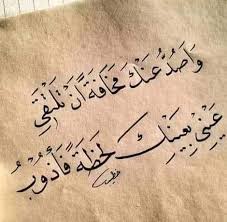 وَأَصُدُّ عَنْكَ مَخَافَةً أَنْ تَلْتَقِي
عَيْنِي بِعَيْنِكَ لَحْظَةً فَأَذُوبُ